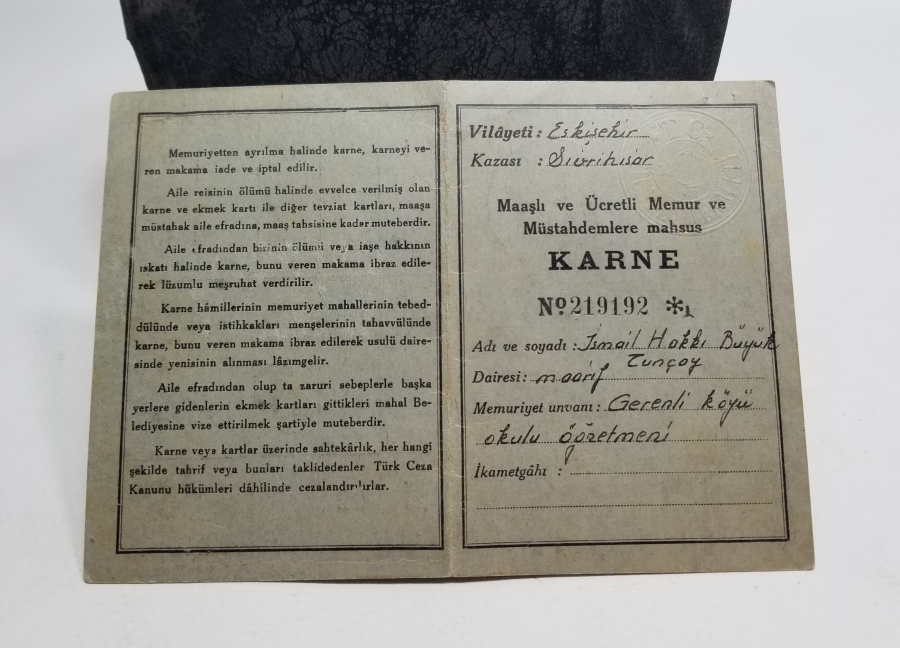 Memuriyetten ayrılma halinde karne, karneyi ve-
ren makama iade ve iptal edilir.
Aile reisinin ölümü halinde evvelce verilmiş olan
karne ve ekmek kartı ile diğer tevziat kartları, maaşa
müstahak aile efradına, maaş tahsisine kadar muteberdir.
Aile efradından birinin ölümü veya iaşe hakkının
ıskatı halinde karne, bunu veren makama ibraz edile-
rek lüzumlu meşruhat verdirilir.
Karne hâmillerinin memuriyet mahallerinin tebed-
dülünde veya istihkakları menşelerinin tahavvülünde
karne, bunu veren makama ibraz edilerek usulü daire-
sinde yenisinin alınması lâzımgelir.
Aile efradından olup ta zaruri sebeplerle başka
yerlere gidenlerin ekmek kartları gittikleri mahal Be-
lediyesine vize ettirilmek şartiyle muteberdir.
Karne veya kartlar üzerinde sahtekârlık, her hangi
şekilde tahrif veya bunları taklidedenler Türk Ceza
Kanunu hükümleri dâhilinde cezalandırılırlar.
Vilâyeti : Eskişehir
Kazası : Sivrihisar
Maaşlı ve Ücretli Memur ve
Müstahdemlere mahsus
KARNE
No 219192 *
Adı ve soyadı : İsmail Hakkı Büyük
Tunçay
Dairesi : maarif
Memuriyet unvanı : Gerenli köyü
okulu öğretmeni
İkametgâhı :